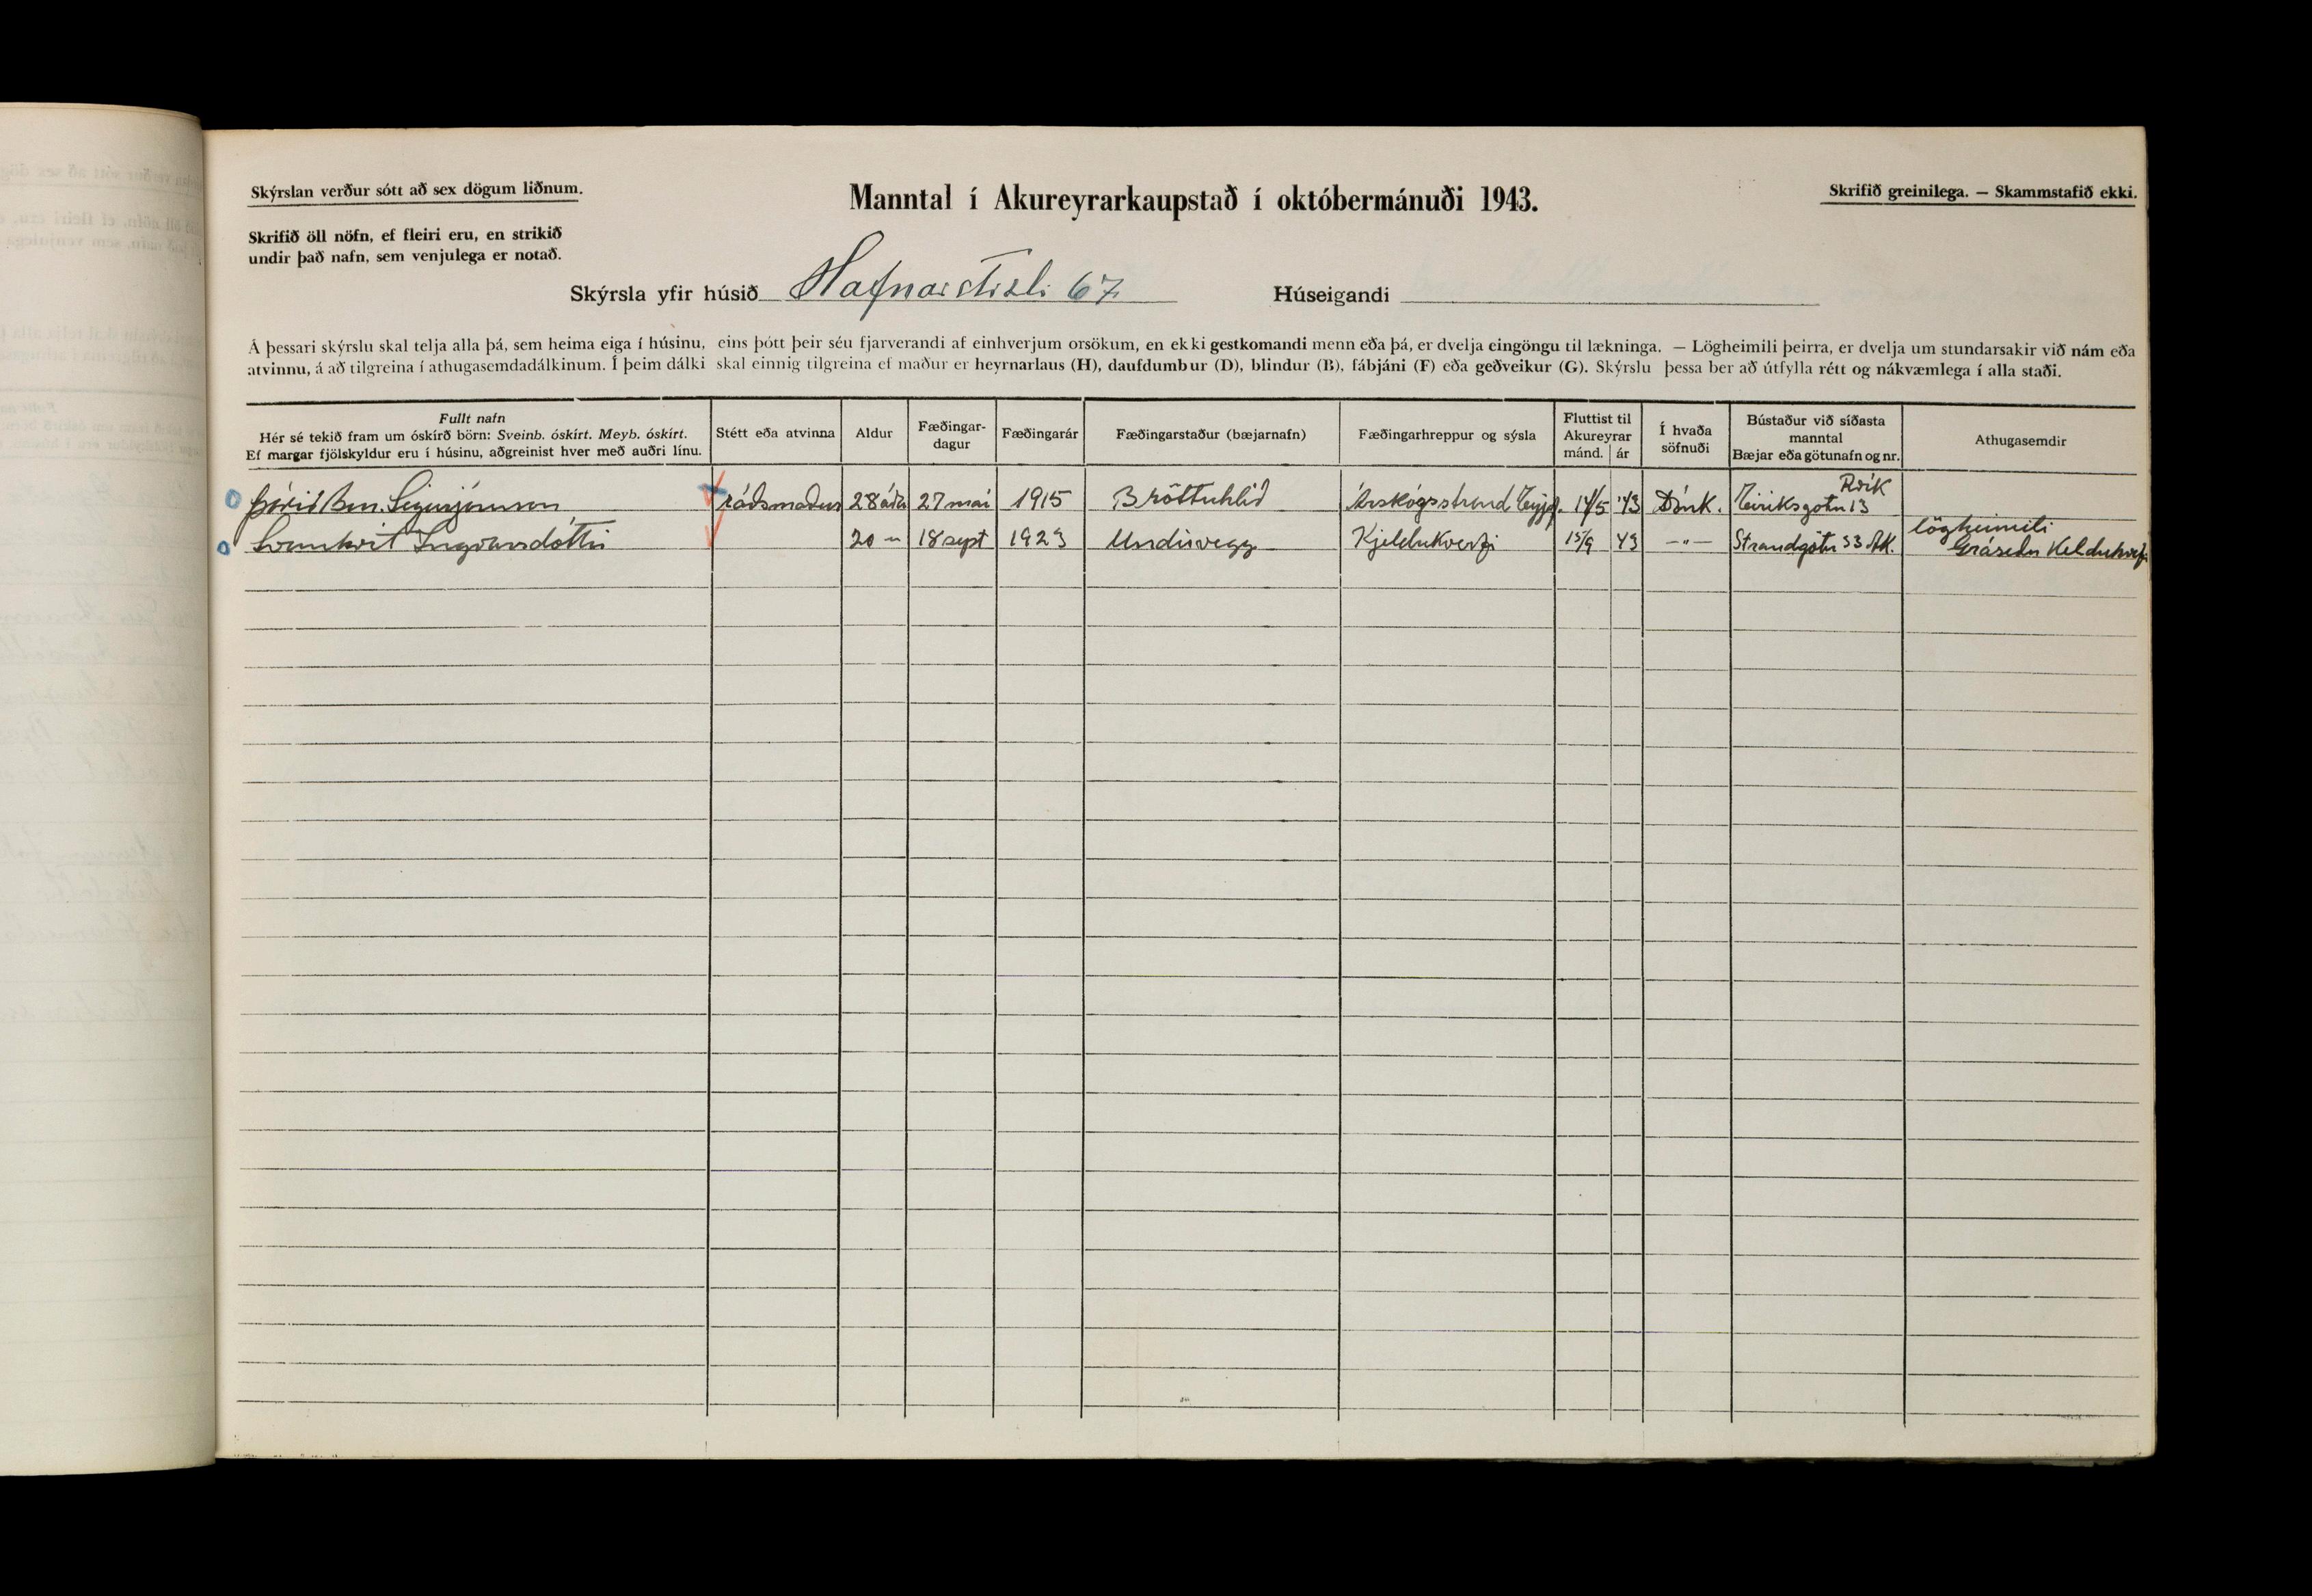 Skýrslan verður sótt að sex dögum liðnum.
Manntal í Akureyrarkaupstað í októbermánuði 1943.
Skrifið greinilega. — Skammstafið ekki.
Skrifið öll nöfn, ef fleiri eru, en strikið
undir það nafn, sem venjulega er notað.
Skýrsla yfir húsið Hafnarstræti 67
Húseigandi
Á þessari skýrslu skal telja alla þá, sem heima eiga í húsinu, eins þótt þeir séu fjarverandi af einhverjum orsökum, en ekki gestkomandi menn eða þá, er dvelja eingöngu til lækninga. — Lögheimili þeirra, er dvelja um stundarsakir við nám eða
atvinnu, á að tilgreina í athugasemdadálkinum. Í þeim dálki skal einnig tilgreina ef maður er heyrnarlaus (H), daufdumbur (D), blindur (B), fábjáni (F) eða geðveikur (G). Skýrslu þessa ber að útfylla rétt og nákvæmlega í alla staði.
Fullt nafn
Hér sé tekið fram um óskírð börn: Sveinb. óskírt. Meyb. óskírt.
Ef margar fjölskyldur eru í húsinu, aðgreinist hver með auðri línu.
Stétt eða atvinna
Aldur
Fæðingar-
dagur
Fæðingarár
Fæðingarstaður (bæjarnafn)
Fæðingarhreppur og sýsla
Fluttist til
Akureyrar
mánd. ár
Í hvaða
söfnuði
Bústaður við síðasta
manntal
Bæjar eða götunafn og nr.
Athugasemdir
Sigurjónsson ráðsmaður 28 ára 27 maí 1915 Bröttuhlíð Árskógsstrand Eyjaf. 14/5 '43 Þjóðk. Eiriksgötu 13 Rvík
Ingvarsdóttir 20 –"– 18 sept 1923 Undirvegg Kjeldukverfi 15/9 43 –"– Strandgötu 33 Ak. lögheimili
Grásíðu Kelduhverfi